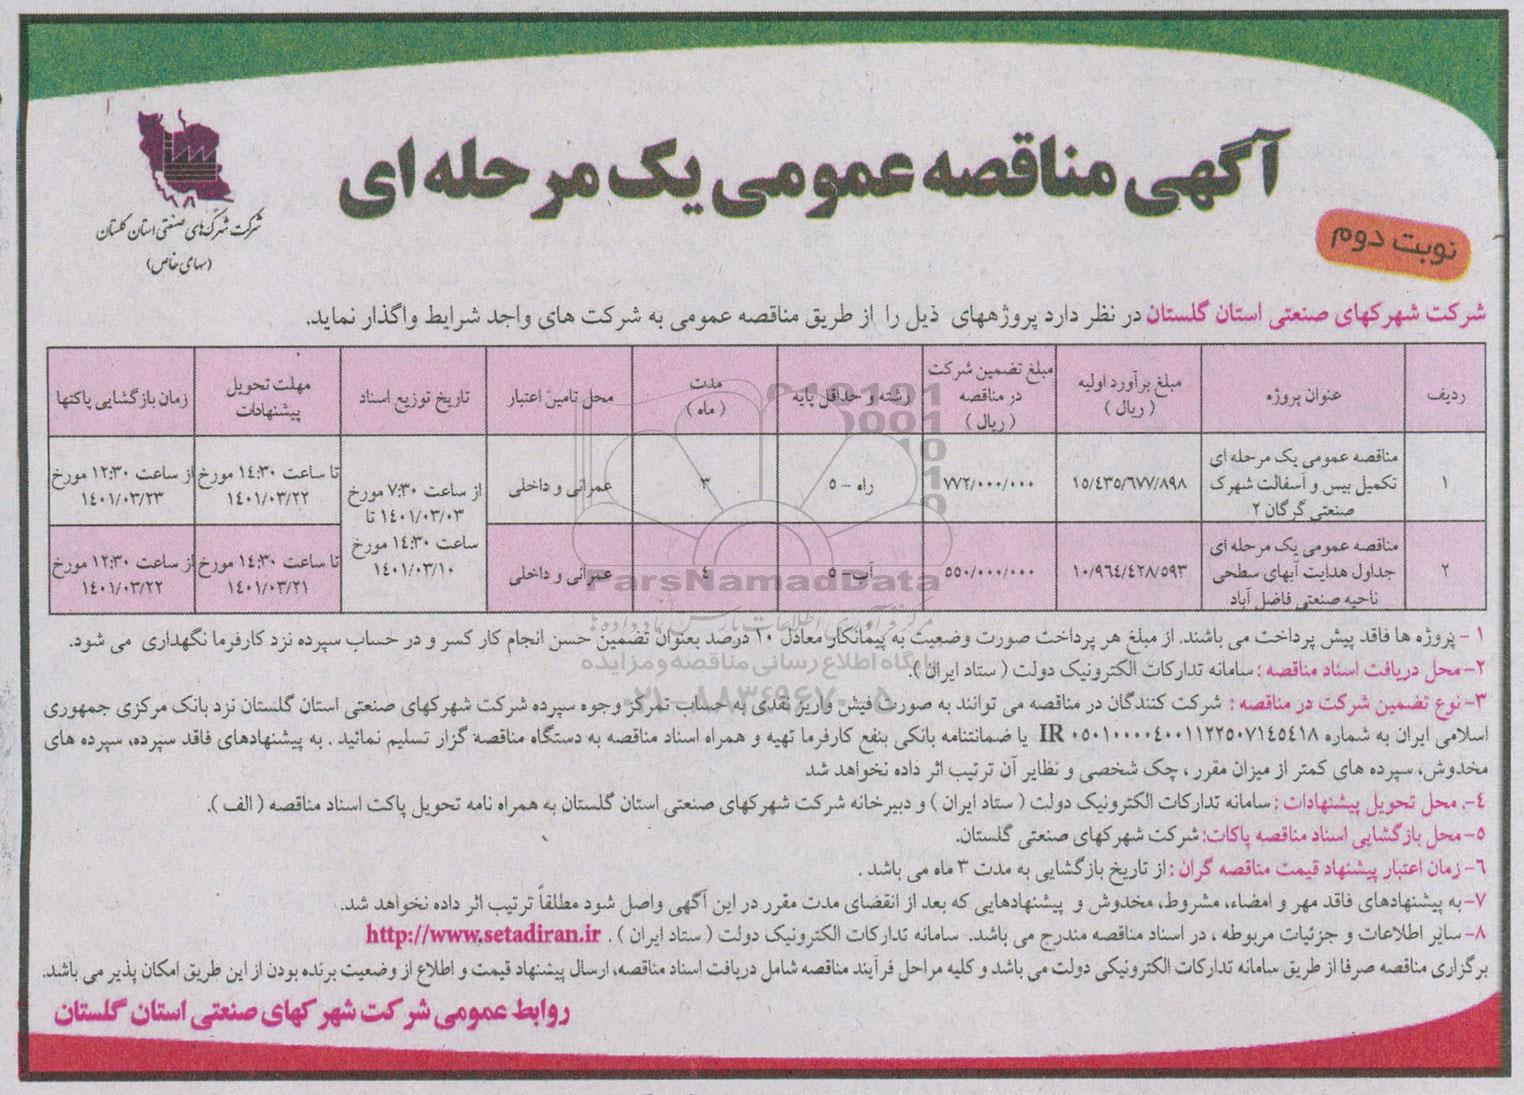 آگهی مناقصه عمومی یک مرحله ای
شرکت شهرک‌های صنعتی استان گلستان
(سهامی خاص)
نوبت دوم
شرکت شهرکهای صنعتی استان گلستان در نظر دارد پروژههای ذیل را از طریق مناقصه عمومی به شرکت های واجد شرایط واگذار نماید.
ردیف | عنوان پروژه | مبلغ برآورد اولیه ( ریال ) | مبلغ تضمین شرکت در مناقصه ( ریال ) | رشته و حداقل پایه | مدت ( ماه ) | محل تامین اعتبار | تاریخ توزیع اسناد | مهلت تحویل پیشنهادات | زمان بازگشایی پاکتها
۱ | مناقصه عمومی یک مرحله ای تکمیل بیس و آسفالت شهرک صنعتی گرگان ۲ | ۱۵/۴۳۵/۶۷۷/۸۹۸ | ۷۷۲/۰۰۰/۰۰۰ | راه - ۵ | ۳ | عمرانی و داخلی | از ساعت ۷:۳۰ مورخ ۱۴۰۱/۰۳/۰۳ تا ساعت ۱۴:۳۰ مورخ ۱۴۰۱/۰۳/۱۰ | تا ساعت ۱۴:۳۰ مورخ ۱۴۰۱/۰۳/۲۲ | از ساعت ۱۲:۳۰ مورخ ۱۴۰۱/۰۳/۲۳
۲ | مناقصه عمومی یک مرحله ای جداول هدایت آبهای سطحی ناحیه صنعتی فاضل آباد | ۱۰/۹۶۴/۴۲۸/۵۹۳ | ۵۵۰/۰۰۰/۰۰۰ | آب - ۵ | ۴ | عمرانی و داخلی | تا ساعت ۱۴:۳۰ مورخ ۱۴۰۱/۰۳/۲۱ | از ساعت ۱۲:۳۰ مورخ ۱۴۰۱/۰۳/۲۲
۱ - پروژه ها فاقد پیش پرداخت می باشند. از مبلغ هر پرداخت صورت وضعیت به پیمانکار معادل ۱۰ درصد بعنوان تضمین حسن انجام کار کسر و در حساب سپرده نزد کارفرما نگهداری می شود.
۲- محل دریافت اسناد مناقصه : سامانه تدارکات الکترونیک دولت ( ستاد ایران ).
۳- نوع تضمین شرکت در مناقصه : شرکت کنندگان در مناقصه می توانند به صورت فیش واریز نقدی به حساب تمرکز وجوه سپرده شرکت شهرکهای صنعتی استان گلستان نزد بانک مرکزی جمهوری
اسلامی ایران به شماره IR ۰۵۰۱۰۰۰۰۴۰۰۱۱۲۲۵۰۷۱۴۵۴۱۸ یا ضمانتنامه بانکی بنفع کارفرما تهیه و همراه اسناد مناقصه به دستگاه مناقصه گزار تسلیم نمائید . به پیشنهادهای فاقد سپرده، سپرده های
مخدوش، سپرده های کمتر از میزان مقرر ، چک شخصی و نظایر آن ترتیب اثر داده نخواهد شد
۴- محل تحویل پیشنهادات : سامانه تدارکات الکترونیک دولت ( ستاد ایران ) و دبیرخانه شرکت شهرکهای صنعتی استان گلستان به همراه نامه تحویل پاکت اسناد مناقصه ( الف ).
۵- محل بازگشایی اسناد مناقصه پاکات: شرکت شهرکهای صنعتی گلستان.
۶- زمان اعتبار پیشنهاد قیمت مناقصه گران : از تاریخ بازگشایی به مدت ۳ ماه می باشد .
۷- به پیشنهادهای فاقد مهر و امضاء، مشروط، مخدوش و پیشنهادهایی که بعد از انقضای مدت مقرر در این آگهی واصل شود مطلقاً ترتیب اثر داده نخواهد شد.
۸- سایر اطلاعات و جزئیات مربوطه ، در اسناد مناقصه مندرج می باشد. سامانه تدارکات الکترونیک دولت ( ستاد ایران ) . http://www.setadiran.ir
برگزاری مناقصه صرفا از طریق سامانه تدارکات الکترونیکی دولت می باشد و کلیه مراحل فرآیند مناقصه شامل دریافت اسناد مناقصه، ارسال پیشنهاد قیمت و اطلاع از وضعیت برنده بودن از این طریق امکان پذیر می باشد.
روابط عمومی شرکت شهرکهای صنعتی استان گلستان
ParsNamadData
مرکز فرآوری اطلاعات پارس نماد داده ها
پایگاه اطلاع رسانی مناقصه و مزایده
۰۲۱-۸۸۳۴۹۶۷۰-۵